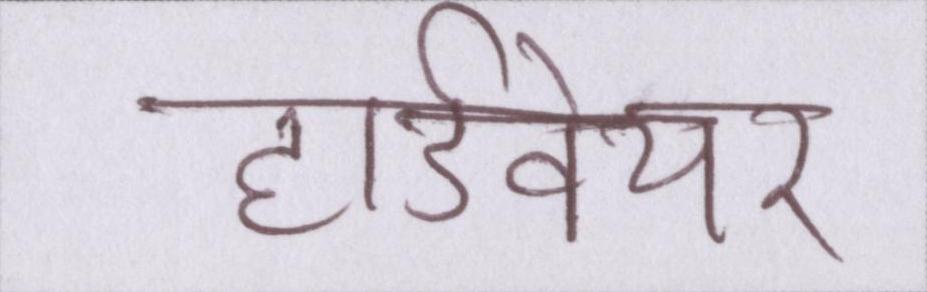 हार्डवेयर